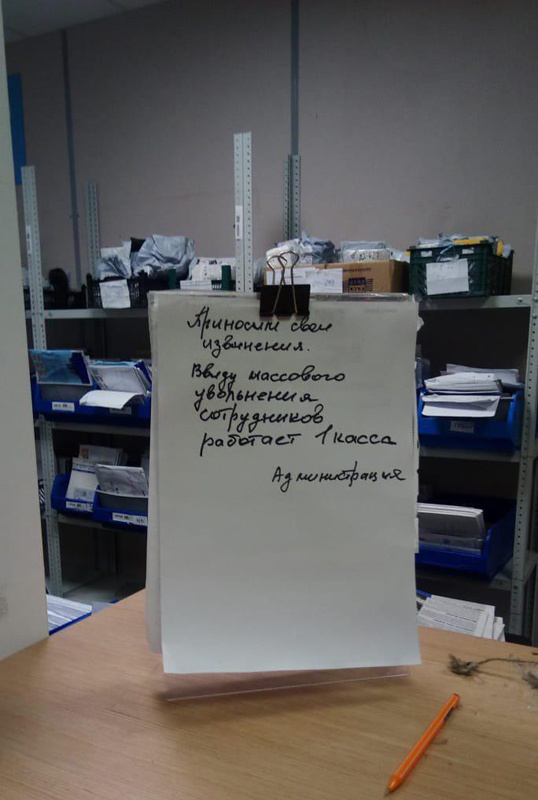 Приносим свои
извинения.
Ввиду массового
увольнения
сотрудников
работает 1 касса
Администрация